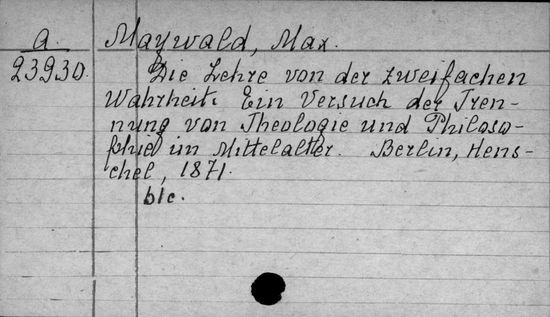 a. Maywald, Max.
23930. Die Lehre von der zweifachen
Wahrheit. Ein Versuch der Tren-
nung von Theologie und Philoso-
phie im Mittelalter. Berlin, Hens-
chel, 1871.
blc.